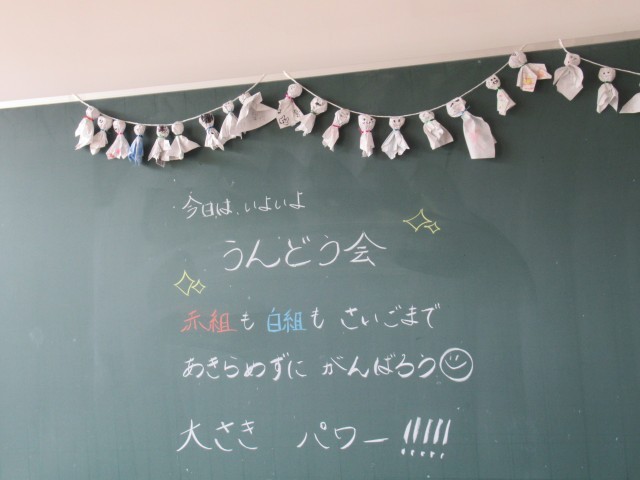 今日は、いよいよ
うんどう会
赤組も白組もさいごまで
あきらめずにがんばろう
大さき パワー!!!!!